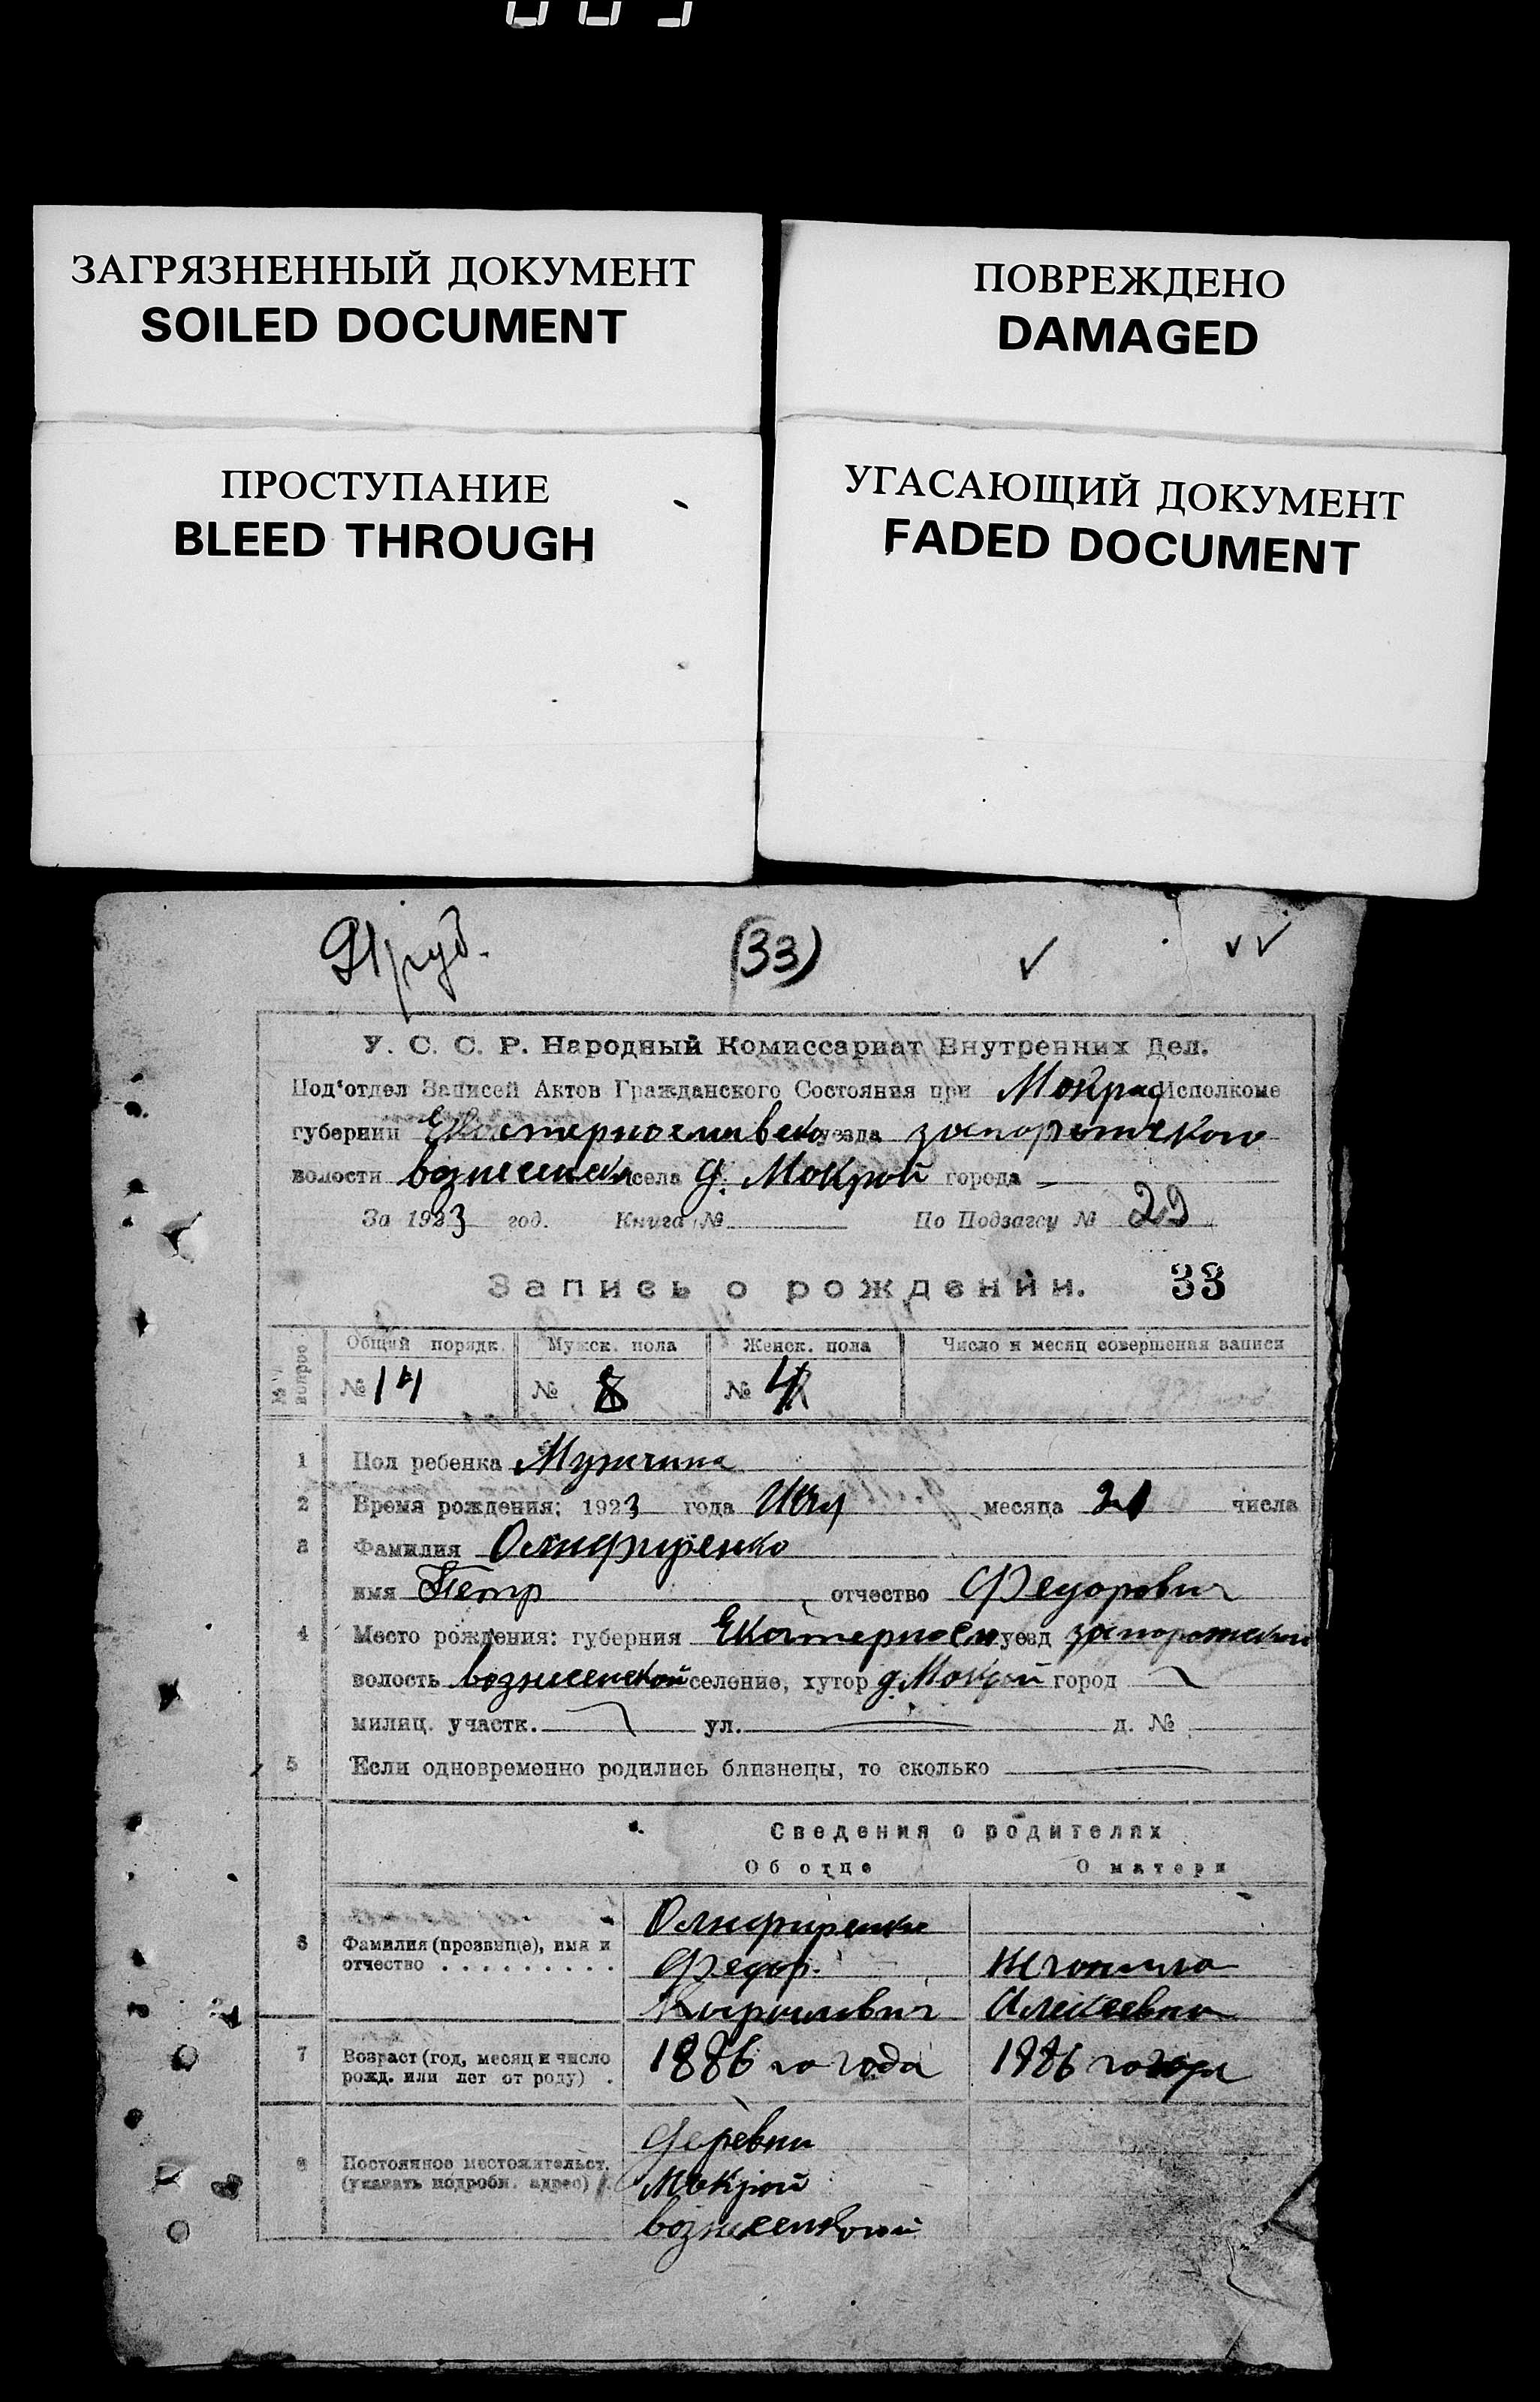 ЗАГРЯЗНЕННЫЙ ДОКУМЕНТ
SOILED DOCUMENT
ПОВРЕЖДЕНО
DAMAGED
ПРОСТУПАНИЕ
BLEED THROUGH
УГАСАЮЩИЙ ДОКУМЕНТ
FADED DOCUMENT
(33)
У. С. С. Р. Народный Комиссариат Внутренних Дел.
Под'отдел Записей Актов Гражданского Состояния при Исполкоме
губернии уезда
волости села д. Мокрой города
За 1923 год. Книга № По Подзагсу № 29
Запись о рождении. 33
№ вопрос Общий порядк. Мужск. пола Женск. пола Число и месяц совершения записи
№ 14 № 8 №
1 Пол ребенка Мужчина
2 Время рождения: 1923 года месяца 21 числа
3 Фамилия Олифиренко
имя Петр отчество Федорович
4 Место рождения: губерния Екатеринослав уезд запорожский
волость вознесенской селение, хутор д. Мокрой город
милиц. участк. ул. д. №
5 Если одновременно родились близнецы, то сколько
Сведения о родителях
Об отце О матери
6 Фамилия (прозвище), имя и отчество
Олифиренко
Федор
Кирилович Алексеевна
7 Возраст (год, месяц и число рожд. или лет от роду) 1886 го года 1986 го года
8 Постоянное местожительст. (указать подробн. адрес)
Деревни
Мокрой
вознесенской